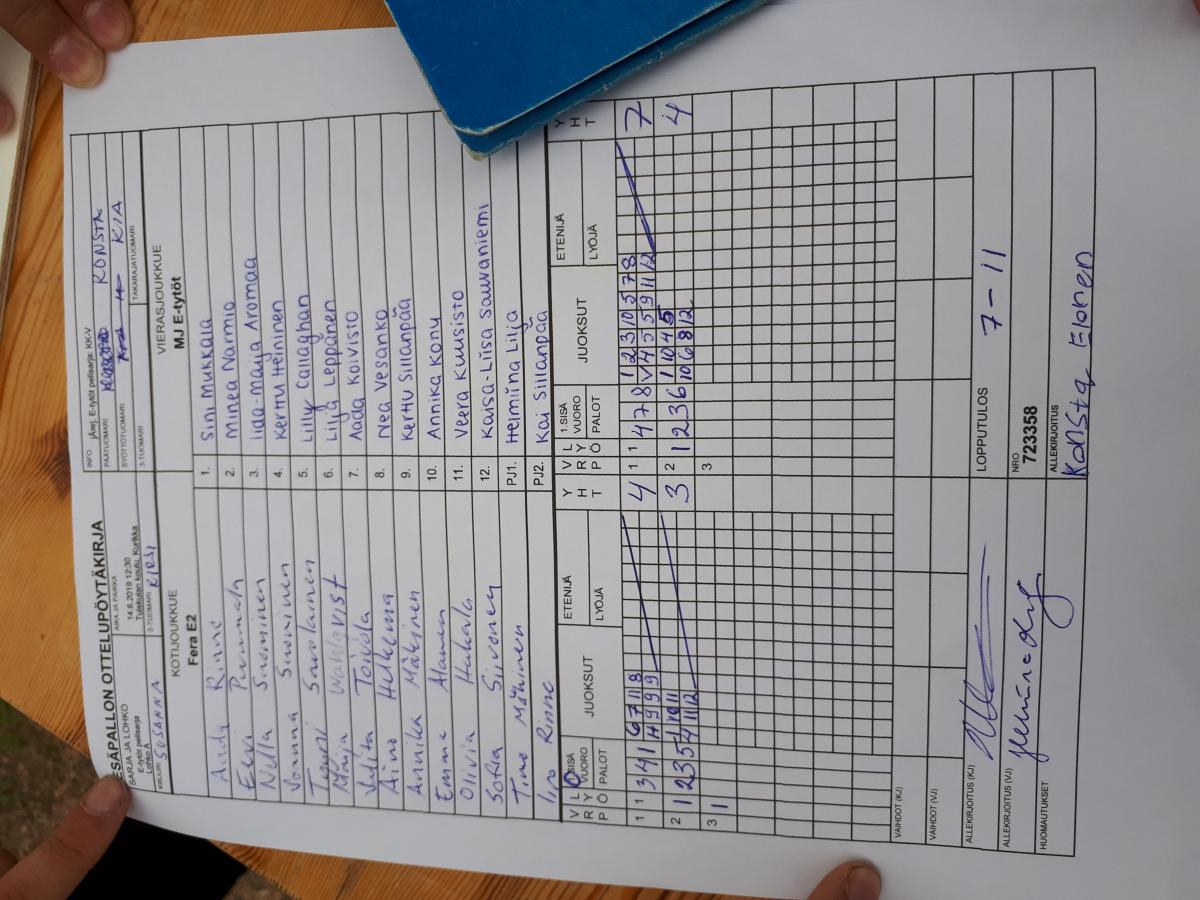 ESÄPALLON OTTELUPÖYTÄKIRJA
SARJA JA LOHKO
E-tytöt pelisarja
Lohko A
AIKA JA PAIKKA
14.6.2019 12:30
Tuiskulan koulu, Kurikka
INFO Jänrj. E-tytöt pelisarja: KK-V
PÄÄTUOMARI KONSTA
SYÖTTÖTUOMARI KIA
KIRJURI SUSANNA
2-TUOMARI KIRSI
3-TUOMARI
TAKARAJATUOMARI
KOTIJOUKKUE
Fera E2
VIERASJOUKKUE
MJ E-tytöt
Rinne 1. Sini Mukkala
Eevi 2. Minea Narmio
Nella Suominen 3. Iida-Maija Aromaa
Vonna Suominen 4. Kerttu Heininen
Savolainen 5. Lilly Callaghan
6. Lilja Leppänen
Toivola 7. Aada Koivisto
Aino Helkema 8. Nea Vesanko
Annika Mäkinen 9. Kerttu Sillanpää
Emma Alanen 10. Annika Kony
Olivia Hakala 11. Veera Kuusisto
Sofia Siivonen 12. Kaisa-Liisa Sauvaniemi
Timo Mäkinen PJ1. Helmiina Lilja
Rinne PJ2. Kai Sillanpää
V R P L Y Ö SISÄ VUORO PALOT JUOKSUT ETENIJÄ LYÖJÄ Y H T
V R P L Y Ö 1.SISÄ VUORO PALOT JUOKSUT ETENIJÄ LYÖJÄ Y H T
1 1 3 4 1 6 7 11 8 4
H 9 9 9
1 1 4 7 8 1 2 3 10 5 7 8 7
V 4 5 5 9 11 12
2 1 2 3 5 1 10 11 3
4 11 12
2 1 2 3 6 1 10 4 5 4
10 6 8 12
3 1
3
VAIHDOT (KJ)
VAIHDOT (VJ)
ALLEKIRJOITUS (KJ)
LOPPUTULOS 7-11
ALLEKIRJOITUS (VJ)
NRO
723358
HUOMAUTUKSET
ALLEKIRJOITUS
Konsta Elonen